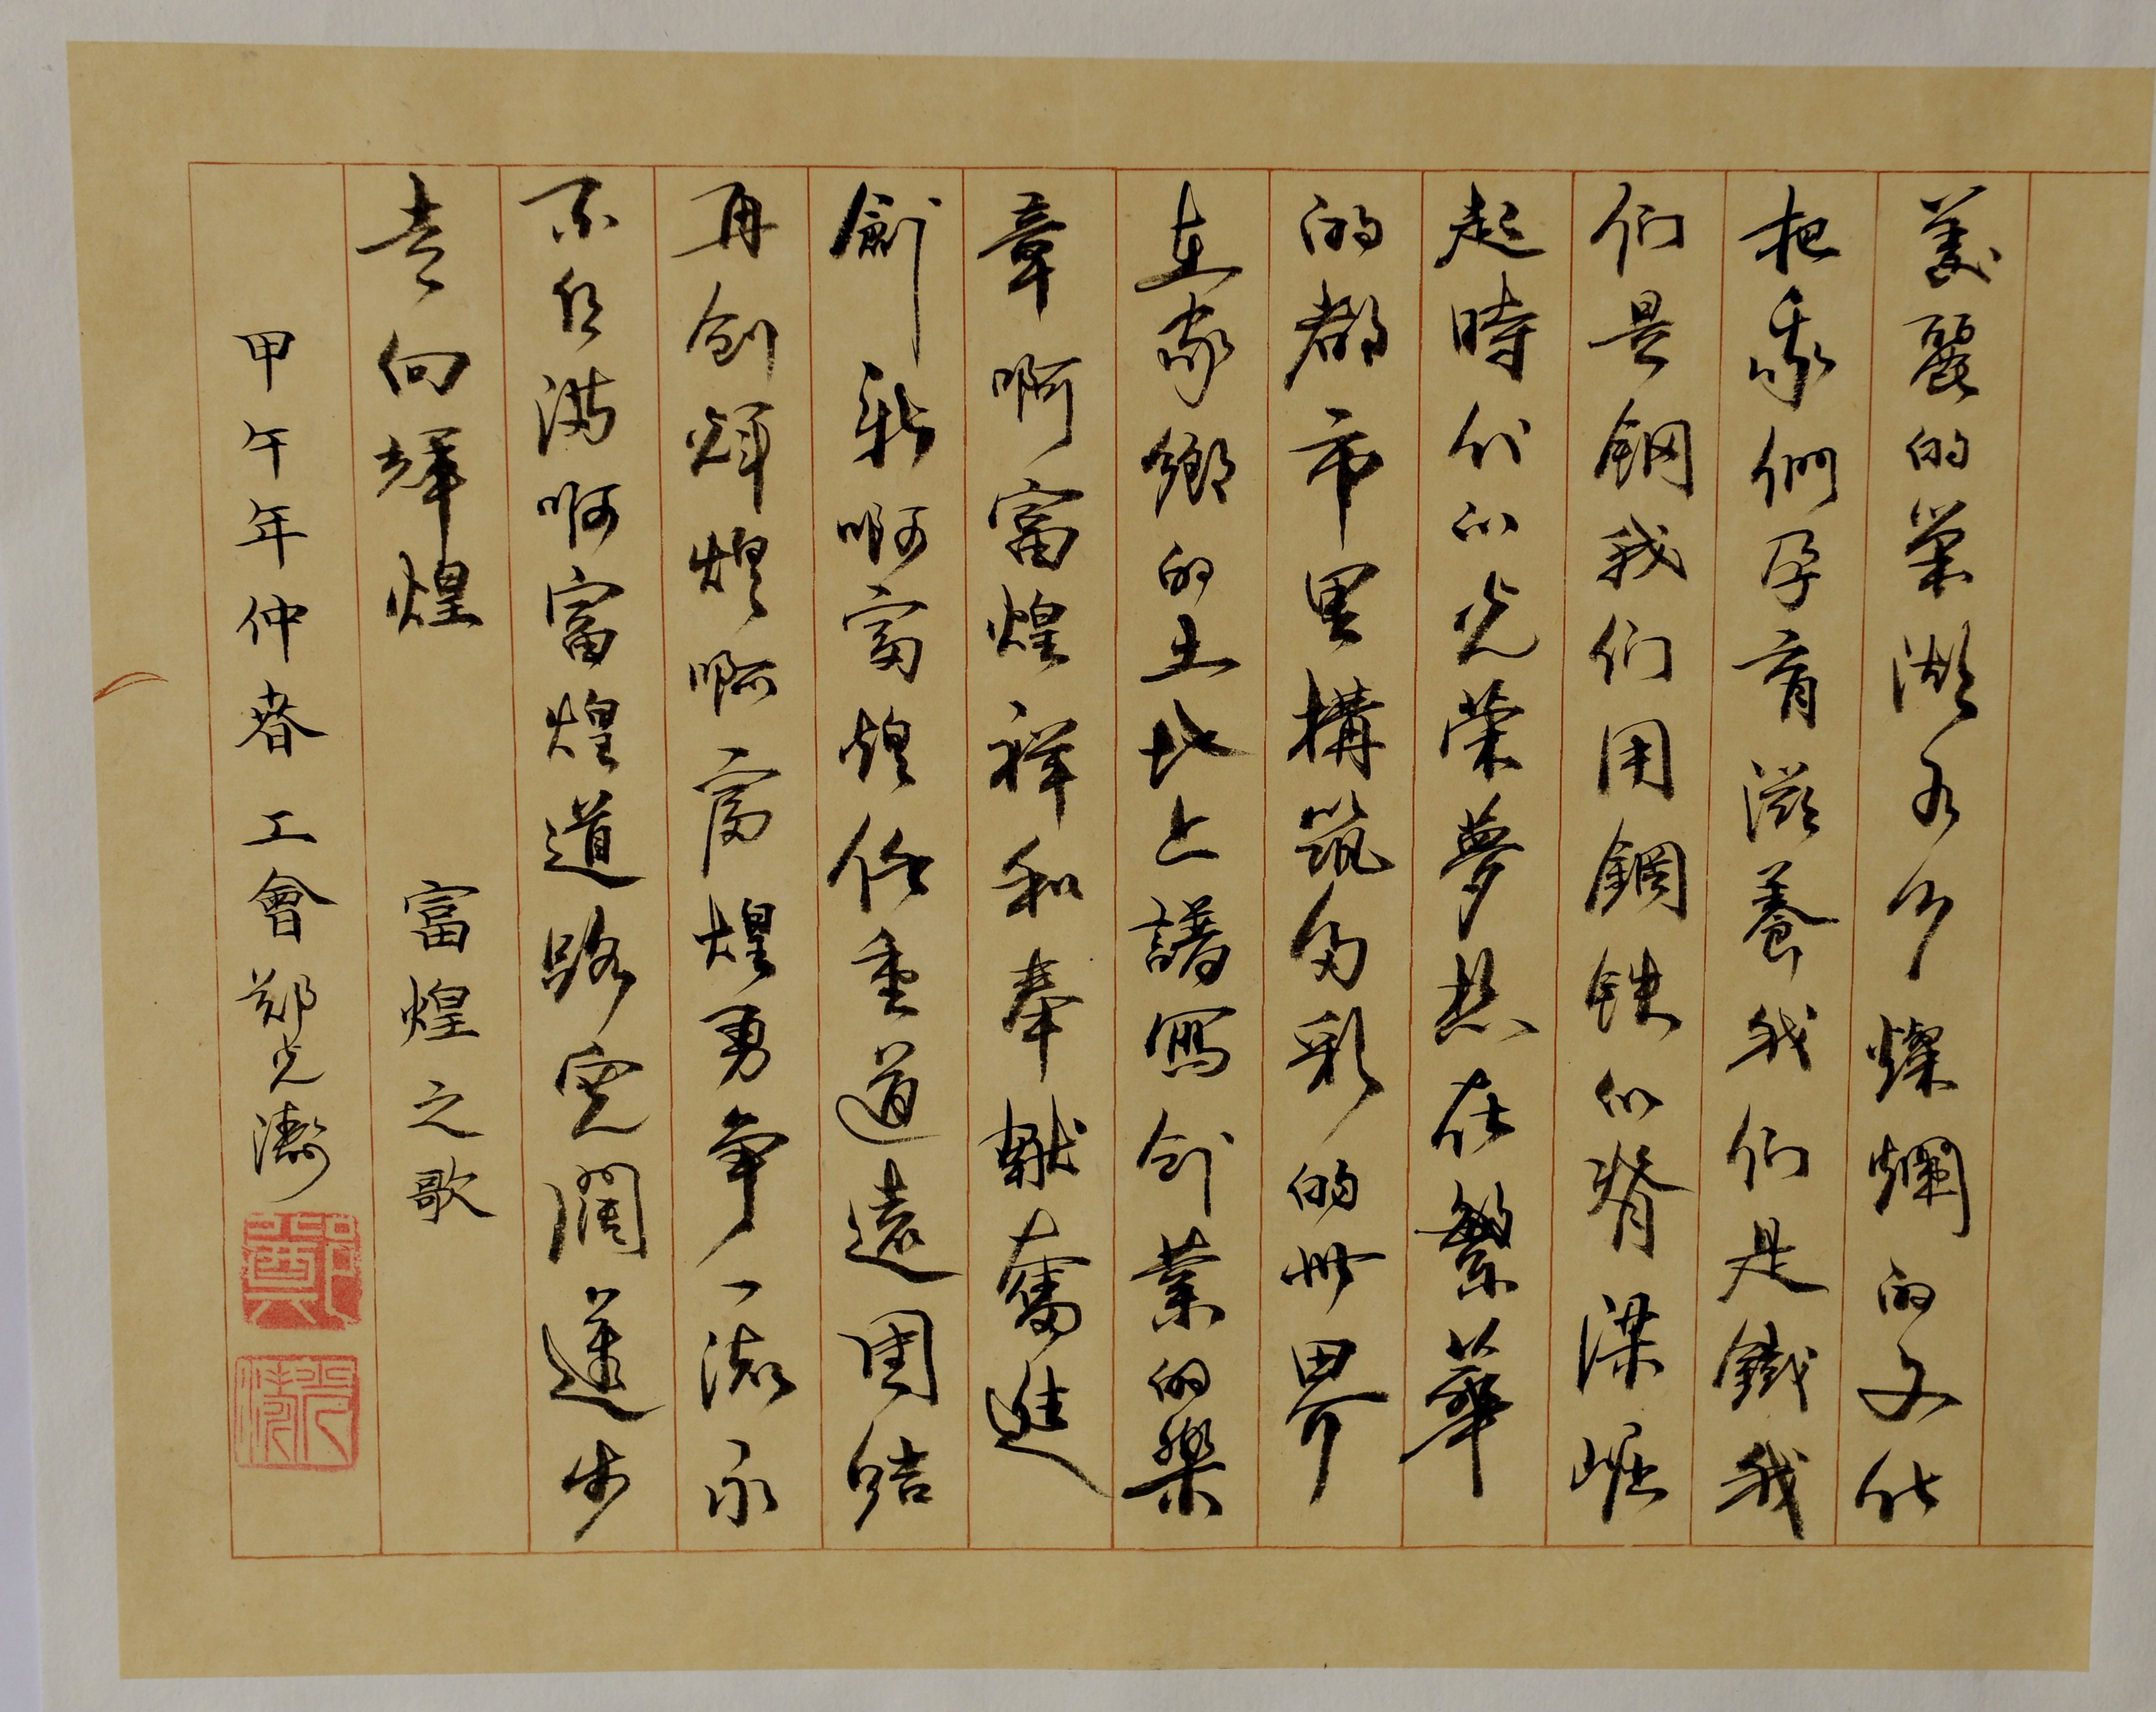 美麗的巢湖水乡燦爛的文化
把我們孕育滋養我们是鐵我
们是鋼我们用鋼铁的脊梁崛
起時代的光荣夢想在繁華
的都市里構筑多彩的世界
在家鄉的土地上譜寫创業的樂
章啊富煌祥和奉献奮進
創新啊富煌任重道遠團結
再创輝煌啊富煌勇争一流永
不自满啊富煌道路宽闊進步
走向輝煌
富煌之歌
甲午年仲春工會郑光